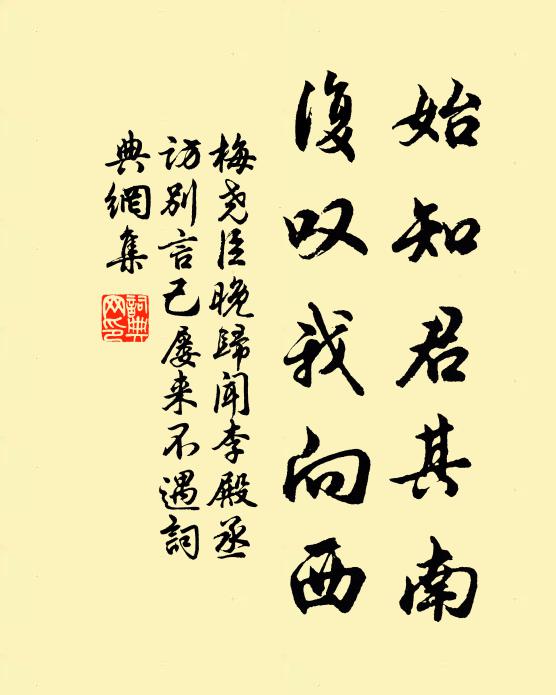 始知君其南
復叹我向西
梅尧臣晚歸闻李殿丞
访别言已屡来不遇詞
典網集
詞典網印